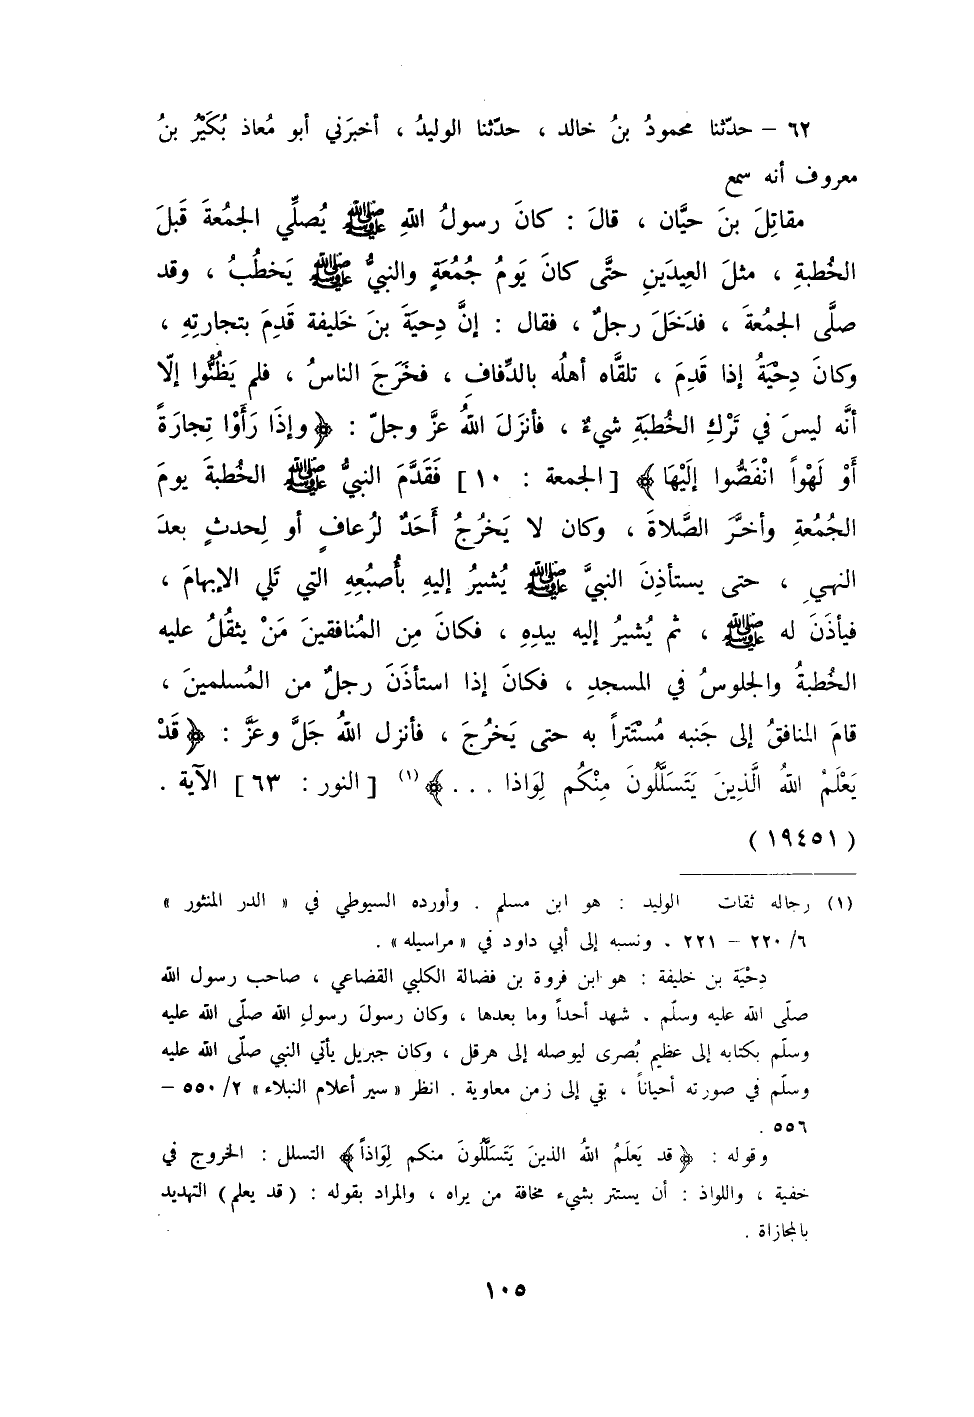 ٦٢ – حدّثنا محمودُ بنُ خالد ، حدّثنا الوليدُ ، أخبرَني أبو مُعاذ بُكَيْرُ بنُ
معروف أنه سمع
مقاتِلَ بنَ حيَّان ، قالَ : كانَ رسولُ اللهِ ﷺ يُصلِّي الجمُعةَ قَبلَ
الخُطبةِ ، مثلَ العِيدَينِ حتَّى كانَ يَومُ جُمُعَةٍ والنبيُّ ﷺ يَخطُبُ ، وقد
صلَّى الجمُعةَ ، فدَخَلَ رجلٌ ، فقال : إنَّ دِحيَةَ بنَ خَليفة قَدِمَ بتجارتِهِ ،
وكانَ دِحْيَةُ إذا قَدِمَ ، تلقَّاه أهلُه بالدِّفافِ ، فخَرَجَ الناسُ ، فلم يَظُنُّوا إلّا
أنَّه ليسَ في تَرْكِ الخُطبَةِ شيءٌ ، فأنزَلَ اللهُ عزَّ وجلّ : ﴿وإذَا رَأَوْا تِجارَةً
أَوْ لَهْواً انْفَضُّوا إلَيْهَا﴾ [الجمعة : ١٠] فَقَدَّمَ النبيُّ ﷺ الخُطبةَ يومَ
الجُمُعةِ وأخَّرَ الصَّلاةَ ، وكان لا يَخرُجُ أَحَدٌ لرُعافٍ أو لِحدثٍ بعدَ
النهيِ ، حتى يستأذِنَ النبيَّ ﷺ يُشيرُ إليهِ بأُصبُعِهِ التي تَلي الإبهامَ ،
فيأذَنَ له ﷺ ، ثم يُشيرُ إليه بيدِهِ ، فكانَ مِن المُنافقينَ مَنْ يثقُلُ عليه
الخُطبةُ والجلوسُ في المسجدِ ، فكانَ إذا استأذَنَ رجلٌ من المُسلمينَ ،
قامَ المنافقُ إلى جَنبه مُسْتَتراً به حتى يَخرُجَ ، فأنزل اللهُ جَلَّ وعَزَّ : ﴿قَدْ
يَعْلَمُ اللهُ الَّذِينَ يَتَسَلَّلُونَ مِنْكُم لِوَاذا . . .﴾(١) [النور : ٦٣] الآية .
(١٩٤٥١)
(١) رجاله ثقات الوليد : هو ابن مسلم . وأورده السيوطي في « الدر المنثور »
٦/ ٢٢٠ – ٢٢١ . ونسبه إلى أبي داود في «مراسيله» .
دِحْيَة بن خليفة : هو ابن فروة بن فضالة الكلبي القضاعي ، صاحب رسول الله
صلّى الله عليه وسلّم . شهد أحداً وما بعدها ، وكان رسولَ رسولِ الله صلّى الله عليه
وسلّم بكتابه إلى عظيم بُصرى ليوصله إلى هرقل ، وكان جبريل يأتي النبي صلّى الله عليه
وسلّم في صورته أحياناً ، بقي إلى زمن معاوية . انظر «سير أعلام النبلاء» ٢/ ٥٥٠ –
٥٥٦ .
وقوله : ﴿قد يَعلَمُ اللهُ الذينَ يَتَسَلَّلُونَ منكم لِوَاذاً﴾ التسلل : الخروج في
خفية ، واللواذ : أن يستتر بشيء مخافة من يراه ، والمراد بقوله : (قد يعلم) التهديد
بالمجازاة .
١٠٥